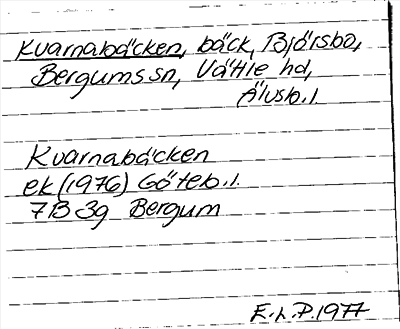 Kvarnabäcken, bäck, Bjärsbo,
Bergums sn, Vättle hd,
Älvsb. l.
Kvarnabäcken
ek (1976) Göteb. l.
7B 3g Bergum
E. L. P. 1977